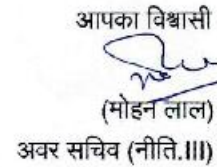 आपका विश्वासी
(मोहन लाल)
अवर सचिव (नीति.III)